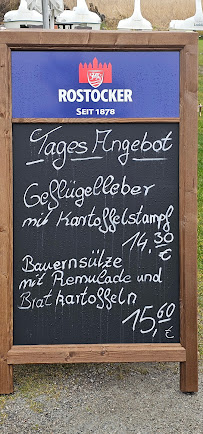 ROSTOCKER
SEIT 1878
Tages Angebot
Geflügelleber
mit Kartoffelstampf
14,30 €
Bauernsülze
mit Remulade und
Bratkartoffeln
15,60 €